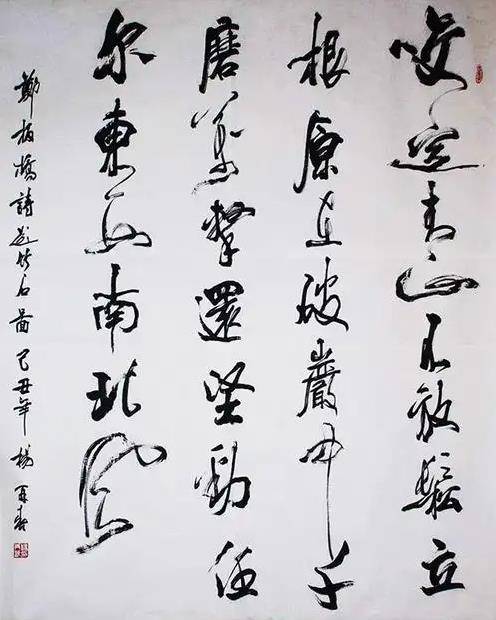 咬定青山不放鬆立
根原在破巖中千
磨萬擊還堅勁任
尔東西南北風
鄭板橋詩題竹石圖 己丑年 楊再春